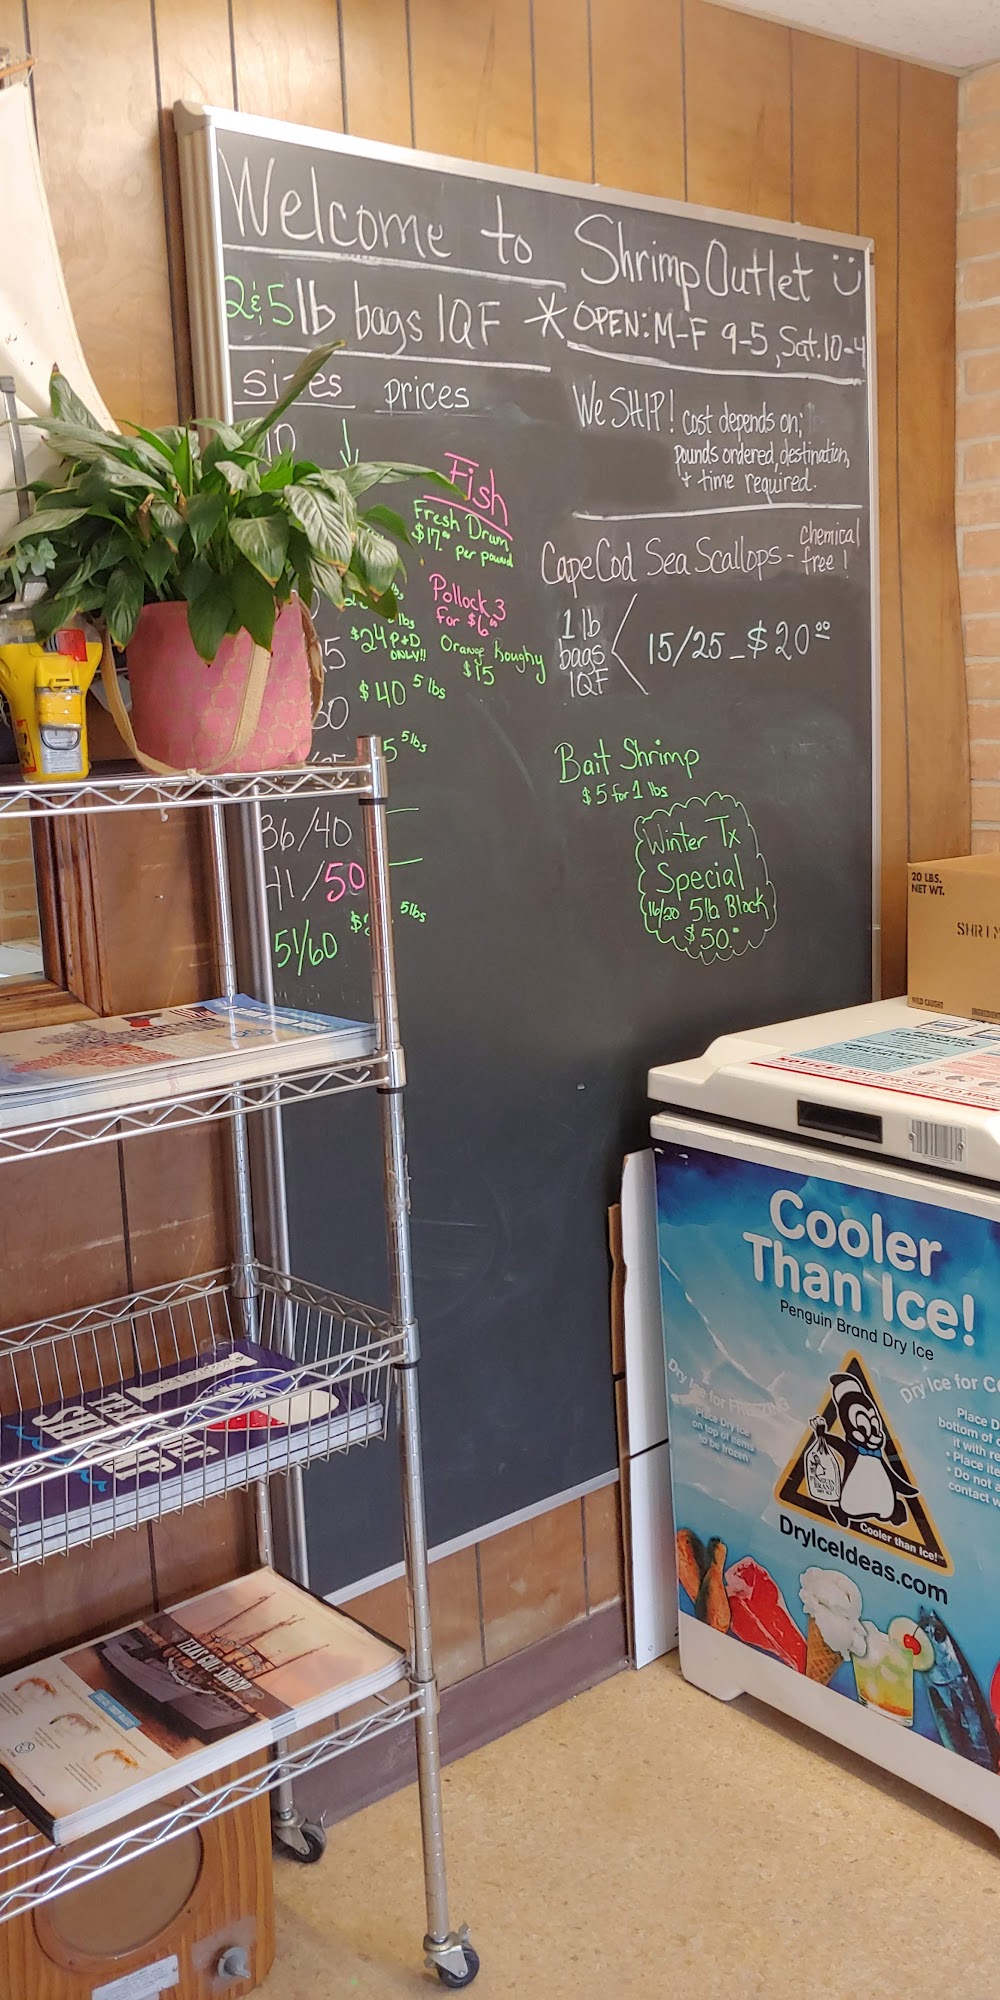 Welcome to Shrimp Outlet
2 & 5 lb bags IQF * OPEN: M-F 9-5, Sat. 10-4
sizes prices
We SHIP! cost depends on;
pounds ordered, destination,
+ time required.
Fish
Fresh Drum
$17.00 per pound
Pollock 3
for $6.00
Orange Roughy
$15
$24 P+D
ONLY!!
$40 5 lbs
5 5lbs
36/40
41/50
51/60
5lbs
Cape Cod Sea Scallops - chemical
free!
1 lb
bags
IQF
15/25 - $20.00
Bait Shrimp
$5 for 1 lbs
Winter Tx
Special
16/20 5lb Block
$50.00
20 LBS.
NET WT.
WILD CAUGHT
Cooler
Than Ice!
Penguin Brand Dry Ice
Dry Ice for FREEZING
Place Dry Ice
on top of items
to be frozen
Dry Ice for
Place
bottom of
it with
• Place
• Do not
contact
PENGUIN
BRAND
Cooler than Ice!
DryIceIdeas.com